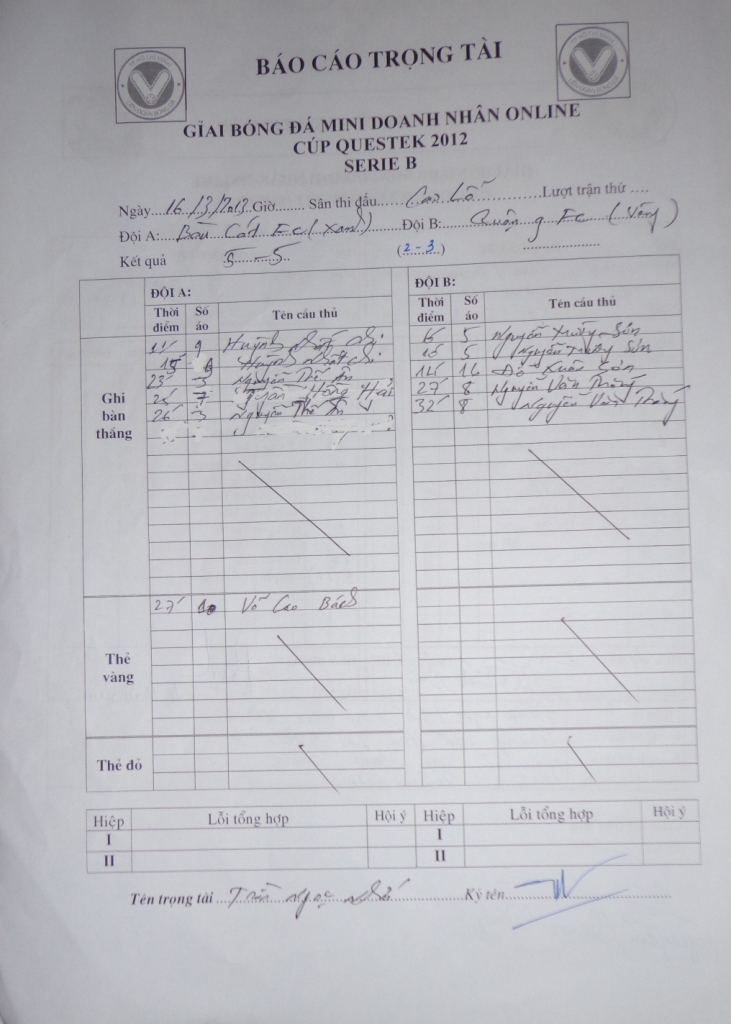 BÁO CÁO TRỌNG TÀI
GIẢI BÓNG ĐÁ MINI DOANH NHÂN ONLINE
CÚP QUESTEK 2012
SERIE B
Ngày...16/3/2013.Giờ........ Sân thi đấu......Cao Lỗ............Lượt trận thứ ....
Đội A:...Bàu Cát FC (Xanh).......Đội B:......Quận 9 FC (Vàng)
Kết quả 5 - 5 (2-3)
ĐỘI A: ĐỘI B:
Thời điểm Số áo Tên cầu thủ Thời điểm Số áo Tên cầu thủ
Ghi bàn thắng
11' 9 Huỳnh Nhất Chi 5 Nguyễn Trường Sơn
15' Huỳnh Nhất Chi 15' 5 Nguyễn Trường Sơn
23' 3 Nguyễn Thế Ân 16 Đỗ Xuân Sơn
25' 7 Trần Hồng Hải 27' 8 Nguyễn Văn Thắng
26' 3 Nguyễn Thế Ân 32' 8 Nguyễn Văn Thắng
Thẻ vàng
27' 10 Võ Cao Bách
Thẻ đỏ
Hiệp Lỗi tổng hợp Hội ý Hiệp Lỗi tổng hợp Hội ý
I I
II II
Tên trọng tài ...Trần Ngọc Nhớ.....Ký tên